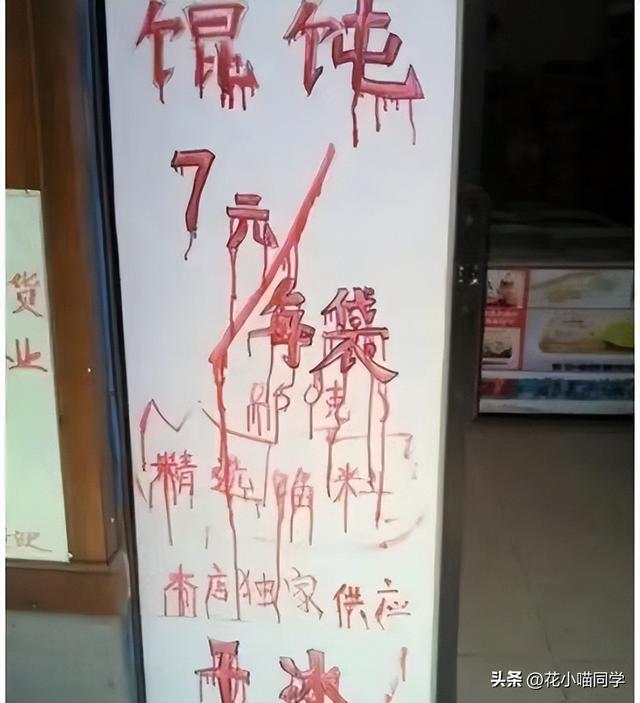 馄饨
7元/
每袋
精选馅料
本店独家供应
货
业
头条 @花小喵同学